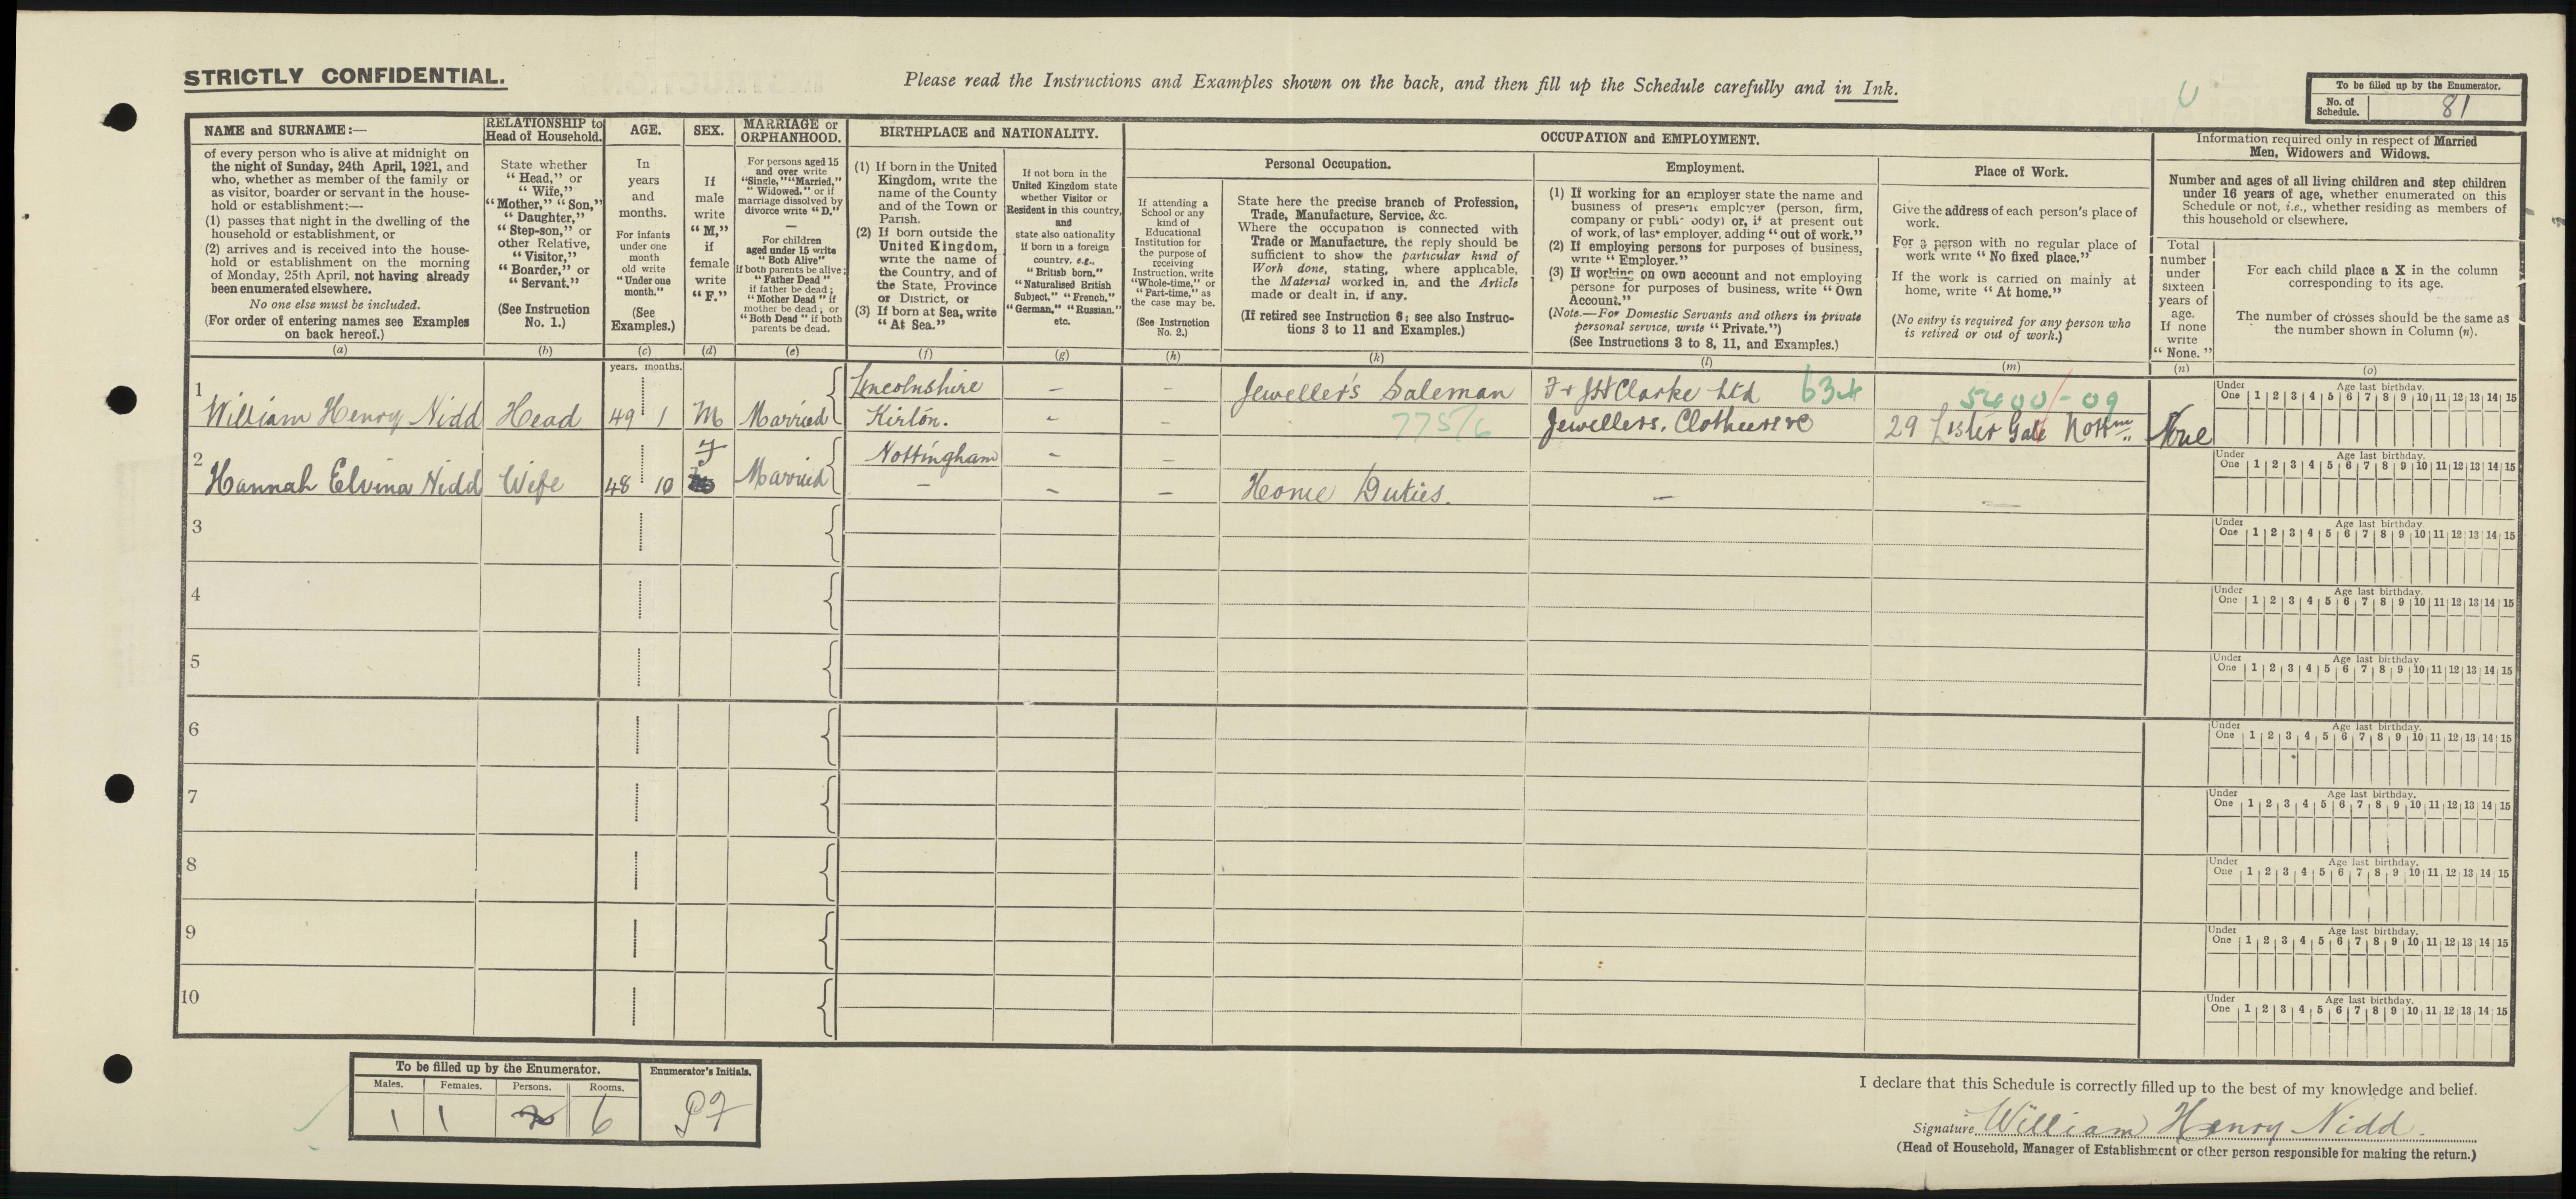 STRICTLY CONFIDENTIAL.
Please read the Instructions and Examples shown on the back, and then fill up the Schedule carefully and in Ink.
To be filled up by the Enumerator.
No. of Schedule. 81
NAME and SURNAME:—
of every person who is alive at midnight on
the night of Sunday, 24th April, 1921, and
who, whether as member of the family or
as visitor, boarder or servant in the house-
hold or establishment:—
(1) passes that night in the dwelling of the
household or establishment, or
(2) arrives and is received into the house-
hold or establishment on the morning
of Monday, 25th April, not having already
been enumerated elsewhere.
No one else must be included.
(For order of entering names see Examples
on back hereof.)
(a)
RELATIONSHIP to
Head of Household.
State whether
"Head," or
"Wife,"
"Mother," "Son,"
"Daughter,"
"Step-son," or
other Relative,
"Visitor,"
"Boarder," or
"Servant."
(See Instruction
No. 1.)
(b)
AGE.
In
years
and
months.
For infants
under one
month
old write
"Under one
month."
(See
Examples.)
(c)
SEX.
If
male
write
"M,"
if
female
write
"F."
(d)
MARRIAGE or
ORPHANHOOD.
For persons aged 15
and over write
"Single," "Married,"
"Widowed," or if
marriage dissolved by
divorce write "D."
—
For children
aged under 15 write
"Both Alive"
if both parents be alive;
"Father Dead"
if father be dead;
"Mother Dead" if
mother be dead; or
"Both Dead" if both
parents be dead.
(e)
BIRTHPLACE and NATIONALITY.
(1) If born in the United
Kingdom, write the
name of the County
and of the Town or
Parish.
(2) If born outside the
United Kingdom,
write the name of
the Country, and of
the State, Province
or District, or
(3) If born at Sea, write
"At Sea."
(f)
If not born in the
United Kingdom state
whether Visitor or
Resident in this country,
and
state also nationality
if born in a foreign
country, e.g.,
"British born,"
"Naturalised British
Subject," "French,"
"German," "Russian."
etc.
(g)
OCCUPATION and EMPLOYMENT.
Personal Occupation.
If attending a
School or any
kind of
Educational
Institution for
the purpose of
receiving
Instruction, write
"Whole-time," or
"Part-time," as
the case may be.
(See Instruction
No. 2.)
(h)
State here the precise branch of Profession,
Trade, Manufacture, Service, &c.
Where the occupation is connected with
Trade or Manufacture, the reply should be
sufficient to show the particular kind of
Work done, stating, where applicable,
the Material worked in, and the Article
made or dealt in, if any.
(If retired see Instruction 6; see also Instruc-
tions 3 to 11 and Examples.)
(k)
Employment.
(1) If working for an employer state the name and
business of present employer (person, firm,
company or public body) or, if at present out
of work, of last employer, adding "out of work."
(2) If employing persons for purposes of business,
write "Employer."
(3) If working on own account and not employing
persons for purposes of business, write "Own
Account."
(Note.—For Domestic Servants and others in private
personal service, write "Private.")
(See Instructions 3 to 8, 11, and Examples.)
(l)
Place of Work.
Give the address of each person's place of
work.
For a person with no regular place of
work write "No fixed place."
If the work is carried on mainly at
home, write "At home."
(No entry is required for any person who
is retired or out of work.)
(m)
Information required only in respect of Married
Men, Widowers and Widows.
Number and ages of all living children and step children
under 16 years of age, whether enumerated on this
Schedule or not, i.e., whether residing as members of
this household or elsewhere.
Total
number
under
sixteen
years of
age.
If none
write
"None."
(n)
For each child place a X in the column
corresponding to its age.
The number of crosses should be the same as
the number shown in Column (n).
(o)
years. months.
1 William Henry Nidd Head 49 1 M Married Lincolnshire Kirton. – – Jeweller's Saleman F & JH Clarke Ltd 634
775/6 Jewellers, 5400/-09 29 Lister Gate Nottm None
Under One 1 2 3 4 5 6 7 8 9 10 11 12 13 14 15 Age last birthday.
2 Hannah Elvina Nidd Wife 48 10 F Married Nottingham – – – Home Duties. – –
Under One 1 2 3 4 5 6 7 8 9 10 11 12 13 14 15 Age last birthday.
3
Under One 1 2 3 4 5 6 7 8 9 10 11 12 13 14 15 Age last birthday
4
Under One 1 2 3 4 5 6 7 8 9 10 11 12 13 14 15 Age last birthday.
5
Under One 1 2 3 4 5 6 7 8 9 10 11 12 13 14 15 Age last birthday.
6
Under One 1 2 3 4 5 6 7 8 9 10 11 12 13 14 15 Age last birthday.
7
Under One 1 2 3 4 5 6 7 8 9 10 11 12 13 14 15 Age last birthday.
8
Under One 1 2 3 4 5 6 7 8 9 10 11 12 13 14 15 Age last birthday.
9
Under One 1 2 3 4 5 6 7 8 9 10 11 12 13 14 15 Age last birthday.
10
Under One 1 2 3 4 5 6 7 8 9 10 11 12 13 14 15 Age last birthday.
To be filled up by the Enumerator. Enumerator's Initials.
Males. Females. Persons. Rooms.
1 1 2 6
I declare that this Schedule is correctly filled up to the best of my knowledge and belief.
Signature William Henry Nidd.
(Head of Household, Manager of Establishment or other person responsible for making the return.)